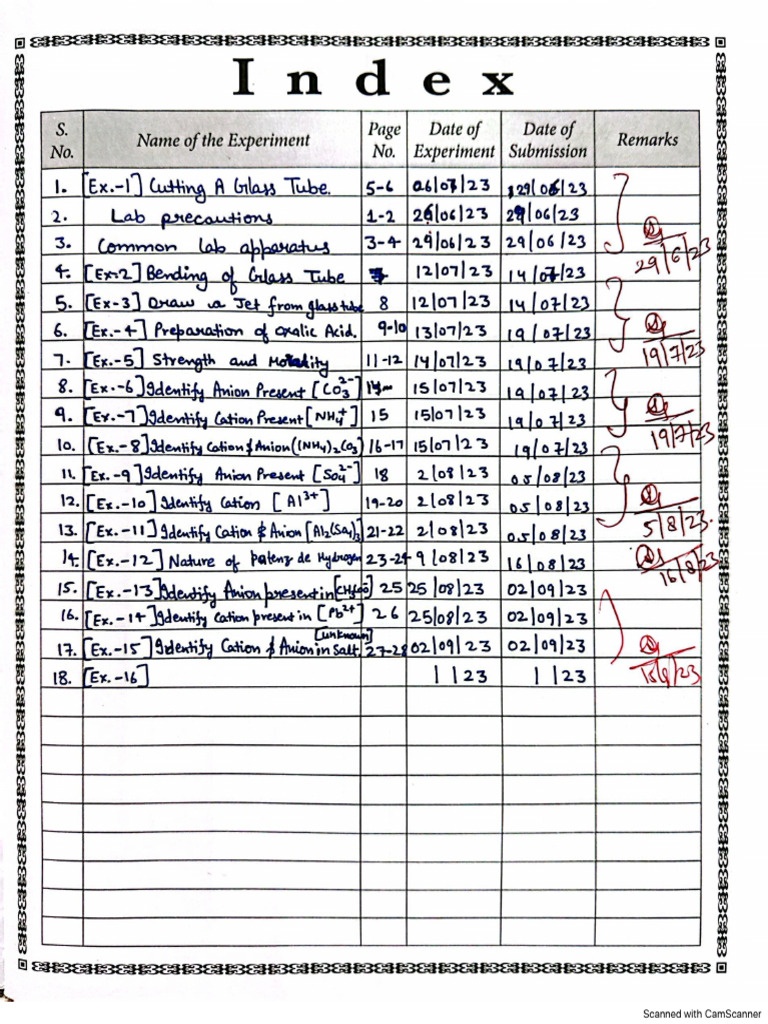 Index
S. No. Name of the Experiment Page No. Date of Experiment Date of Submission Remarks
1. [Ex.-1] Cutting A Glass Tube. 5-6 06/07/23 29/06/23
2. Lab precautions 1-2 26/06/23 29/06/23
3. Common lab apparatus 3-4 29/06/23 29/06/23 29/6/23
4. [Ex-2] Bending of Glass Tube 7 12/07/23 14/07/23
5. [Ex-3] Draw a Jet from glass tube 8 12/07/23 14/07/23
6. [Ex.-4] Preparation of Oxalic Acid. 9-10 13/07/23 19/07/23 19/7/23
7. [Ex.-5] Strength and Molality 11-12 14/07/23 19/07/23
8. [Ex.-6] Identify Anion Present [CO₃²⁻] 15/07/23 19/07/23
9. [Ex.-7] Identify Cation Present [NH₄⁺] 15 15/07/23 19/07/23 19/7/23
10. [Ex.-8] Identify Cation & Anion ((NH₄)₂CO₃) 16-17 15/07/23 19/07/23
11. [Ex.-9] Identify Anion Present [SO₄²⁻] 18 2/08/23 05/08/23
12. [Ex.-10] Identify Cation [Al³⁺] 19-20 2/08/23 05/08/23
13. [Ex.-11] Identify Cation & Anion [Al₂(SO₄)₃ 21-22 2/08/23 05/08/23 5/8/23.
14. [Ex.-12] Nature of de Hydrogen 23-24 9/08/23 16/08/23 16/8/23
15. [Ex.-13] Identify Anion present in 25 25/08/23 02/09/23
16. [Ex.-14] Identify Cation present in [Pb²⁺] 26 25/08/23 02/09/23
17. [Ex.-15] Identify Cation & Anion in Salt. [unknown] 27-28 02/09/23 02/09/23
18. [Ex.-16] / /23 / /23
Scanned with CamScanner